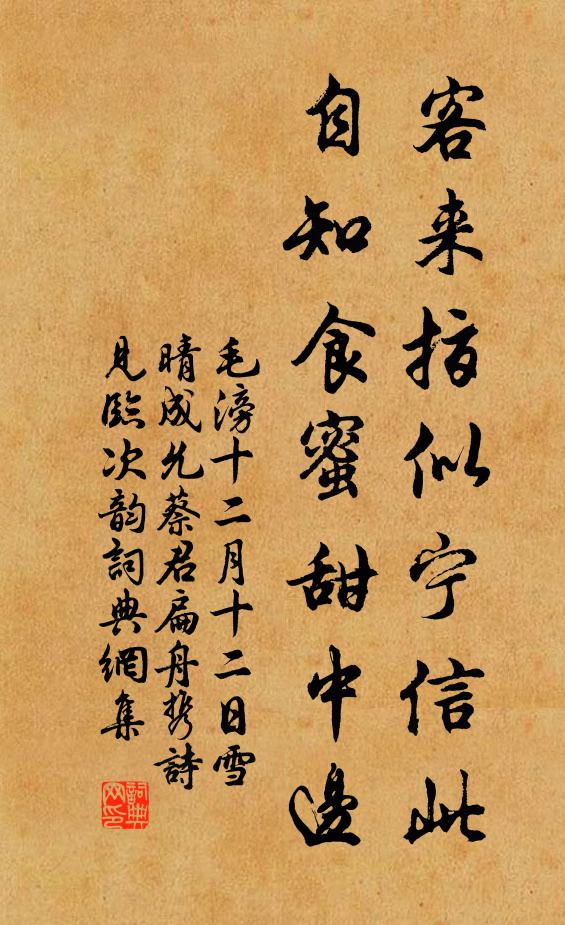 客来指似宁信此
自知食蜜甜中邊
毛滂十二月十二日雪
晴成允蔡君扁舟携詩
見臨次韵詞典網集
詞典
网印